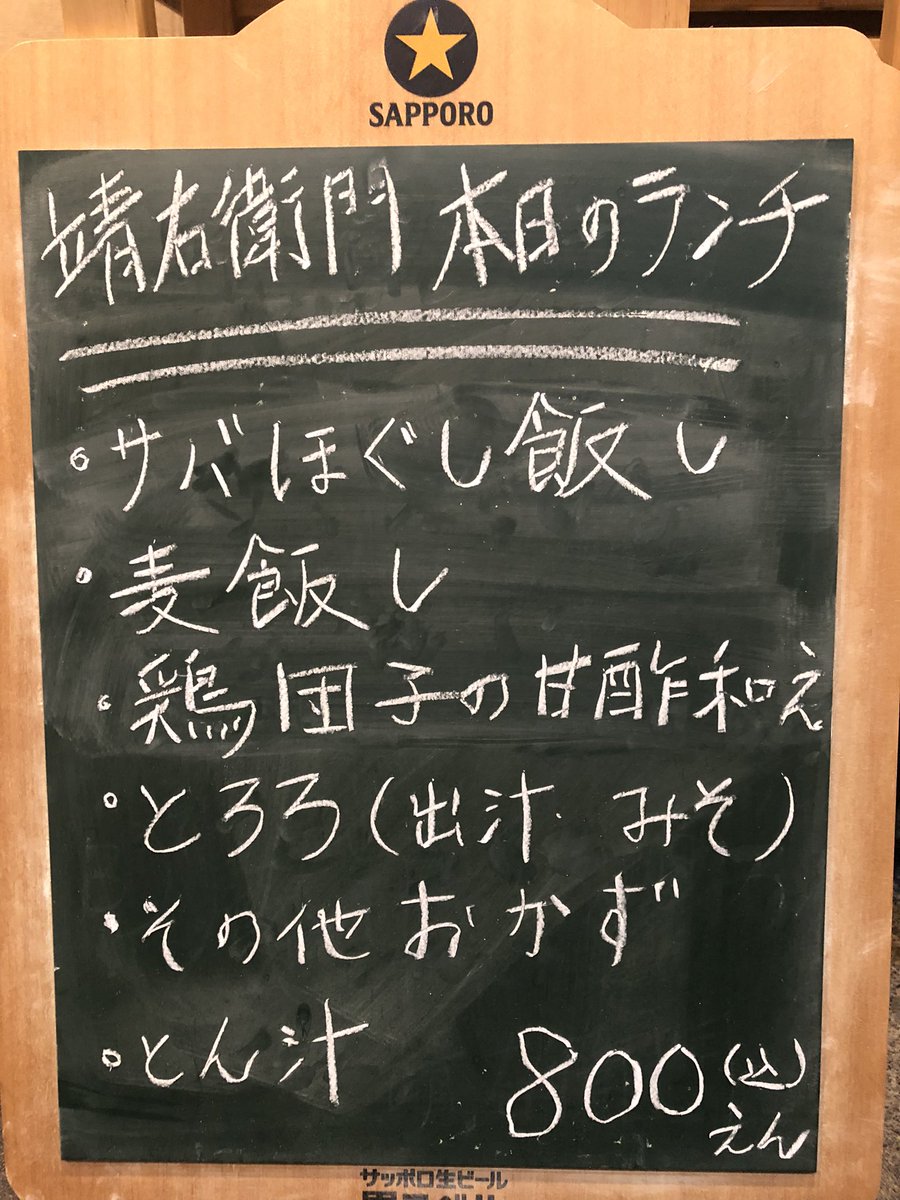 SAPPORO
靖右衛門 本日のランチ
・サバほぐし飯し
・麦飯し
・鶏団子の甘酢和え
・とろろ(出汁 みそ)
・その他おかず
・とん汁
800(込)えん
サッポロ生ビール